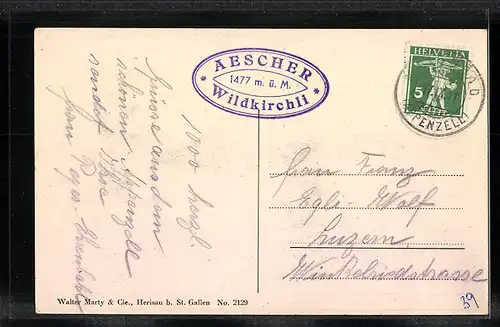 AESCHER
1477 m. ü. M.
Wildkirchli
HELVETIA
5
APPENZELL
1000 herzl.
Grüsse aus dem
schönen Appenzell
sendet Ihre
Frau
Herrn Franz
Egli-Wolf
Luzern
Winkelriedstrasse
Walter Marty & Cie., Herisau b. St. Gallen No. 2129
39